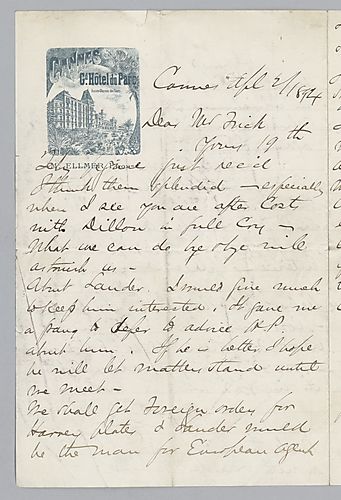 CANNES
Gd. Hôtel du Parc
ELLMER
Cannes Apl 2/1894
Dear Mr Frick
Yours 19th
just rec'd
I think them splendid — especially
when I see you are after Cost
with Dillon in full Cry —
What we can do bye & bye will
astonish us —
About Lauder. I would give much
to keep him interested; it gave me
a pang to defer to advice H.P.
about him. If he is better I hope
he will let matters stand until
we meet —
We shall get Foreign orders for
Harvey plates & Lauder would
be the man for European agent